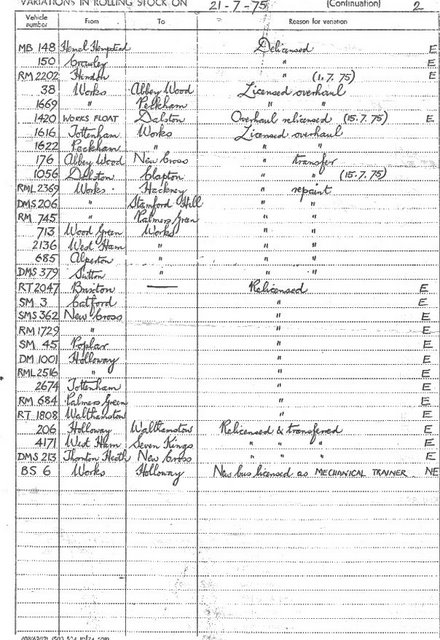 VARIATIONS IN ROLLING STOCK ON 21-7-75 (Continuation) 2
Vehicle number From To Reason for variation
MB 148 Hemel Hempstead Delicensed E
150 Crawley " E
RM 2202 Hendon " (1.7.75) E
38 Works Abbey Wood Licensed overhaul
1669 " Peckham " "
1420 WORKS FLOAT Dalston Overhaul relicensed (15.7.75) E
1616 Tottenham Works Licensed overhaul
1622 Peckham " " "
176 Abbey Wood New Cross " transfer
1056 Dalston Clapton " " (15.7.75)
RML 2369 Works Hackney " repaint
DMS 206 " Stamford Hill " "
RM 745 " Palmers Green " "
713 Wood Green Works " "
2136 West Ham " " "
685 Alperton " " "
DMS 379 Sutton " " "
RT 2047 Brixton — Relicensed E
SM 3 Catford " E
SMS 362 New Cross " E
RM 1729 " " E
SM 45 Poplar " E
DM 1001 Holloway " E
RML 2516 " " E
2674 Tottenham " E
RM 684 Palmers Green " E
RT 1808 Walthamstow " E
206 Holloway Walthamstow Relicensed & transferred E
4171 West Ham Seven Kings " " " E
DMS 213 Thornton Heath New Cross " " " E
BS 6 Works Holloway New bus licensed as MECHANICAL TRAINER. NE